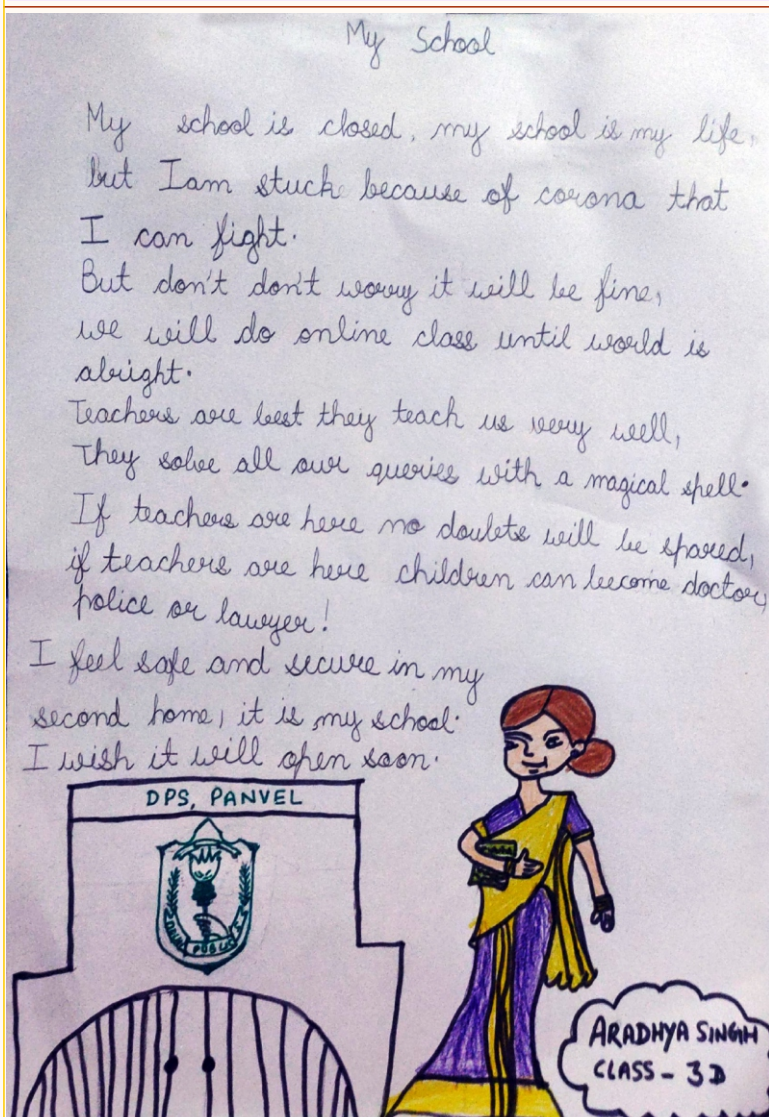 My School
My school is closed, my school is my life,
but I am stuck because of corona that
I can fight.
But don't don't worry it will be fine,
we will do online class until world is
alright.
Teachers are best they teach us very well,
They solve all our queries with a magical spell.
If teachers are here no doubts will be spared,
if teachers are here children can become doctor,
police or lawyer!
I feel safe and secure in my
second home, it is my school.
I wish it will open soon.
DPS, PANVEL
PUBLIC
ARADHYA SINGH
CLASS - 3D